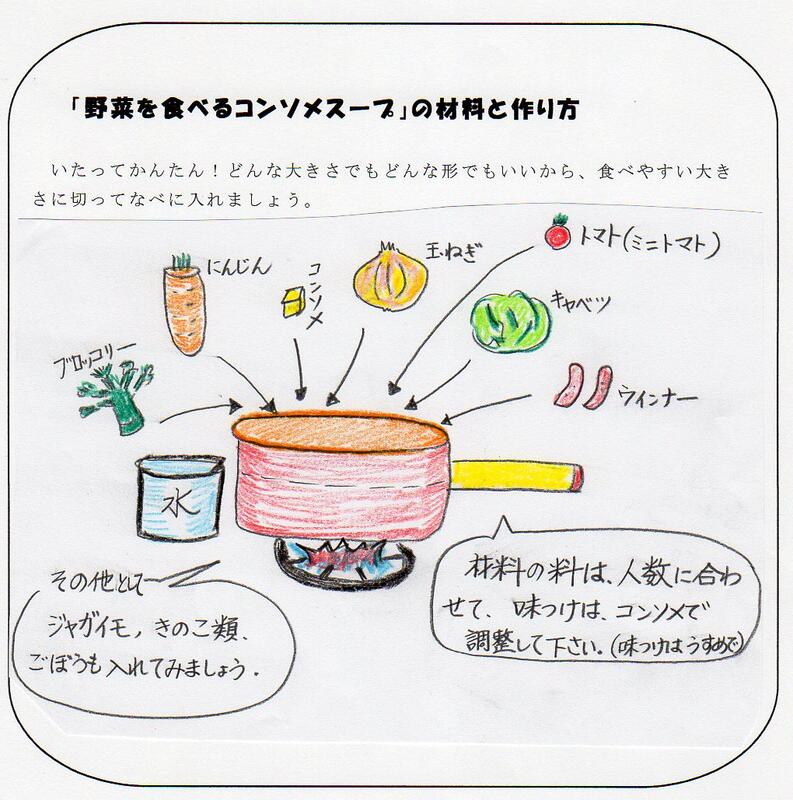 「野菜を食べるコンソメスープ」の材料と作り方
いたってかんたん！どんな大きさでもどんな形でもいいから、食べやすい大き
さに切ってなべに入れましょう。
トマト(ミニトマト)
玉ねぎ
コンソメ
にんじん
キャベツ
ブロッコリー
ウインナー
水
材料の料は、人数に合わ
せて、味つけは、コンソメで
調整して下さい。(味つけはうすめで)
その他として
ジャガイモ，きのこ類、
ごぼうも入れてみましょう．